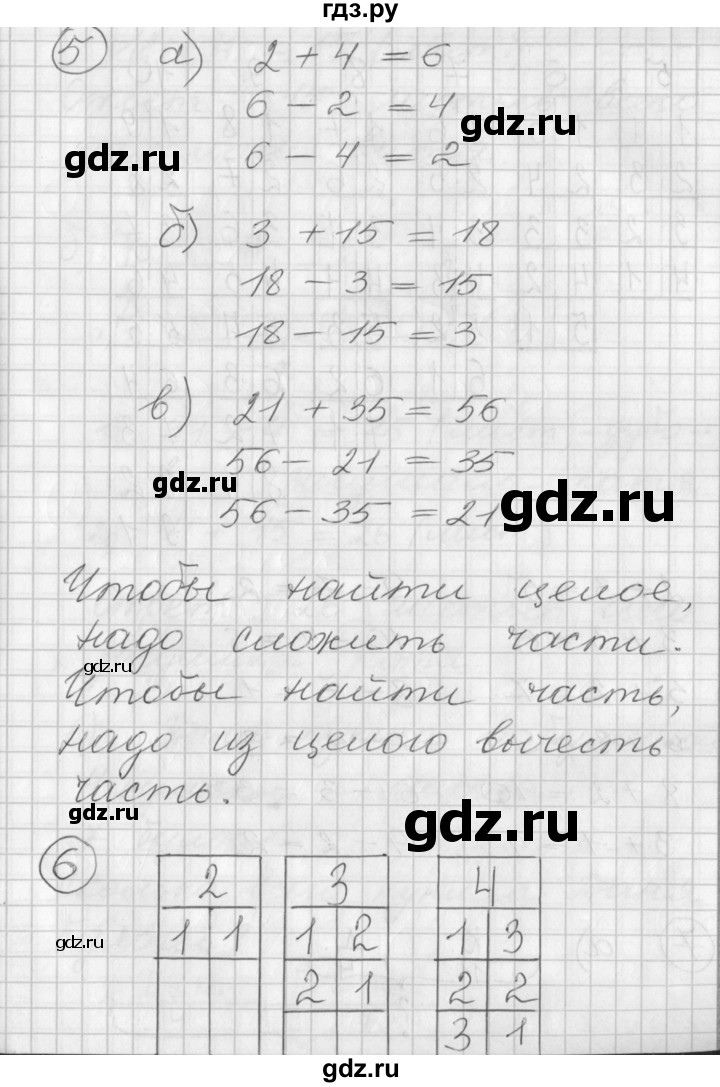 гдз.ру
5 а) 2 + 4 = 6
6 - 2 = 4
gdz.ru
6 - 4 = 2
gdz.ru
б) 3 + 15 = 18
18 - 3 = 15
18 - 15 = 3
в) 21 + 35 = 56
56 - 21 = 35
gdz.ru
56 - 35 = 21
gdz.ru
Чтобы найти целое,
надо сложить части.
gdz.ru
Чтобы найти часть,
надо из целого вычесть
часть.
gdz.ru
gdz.ru
6 2 3 4
1 1 1 2 1 3
gdz.ru
2 1 2 2
3 1
gdz.ru